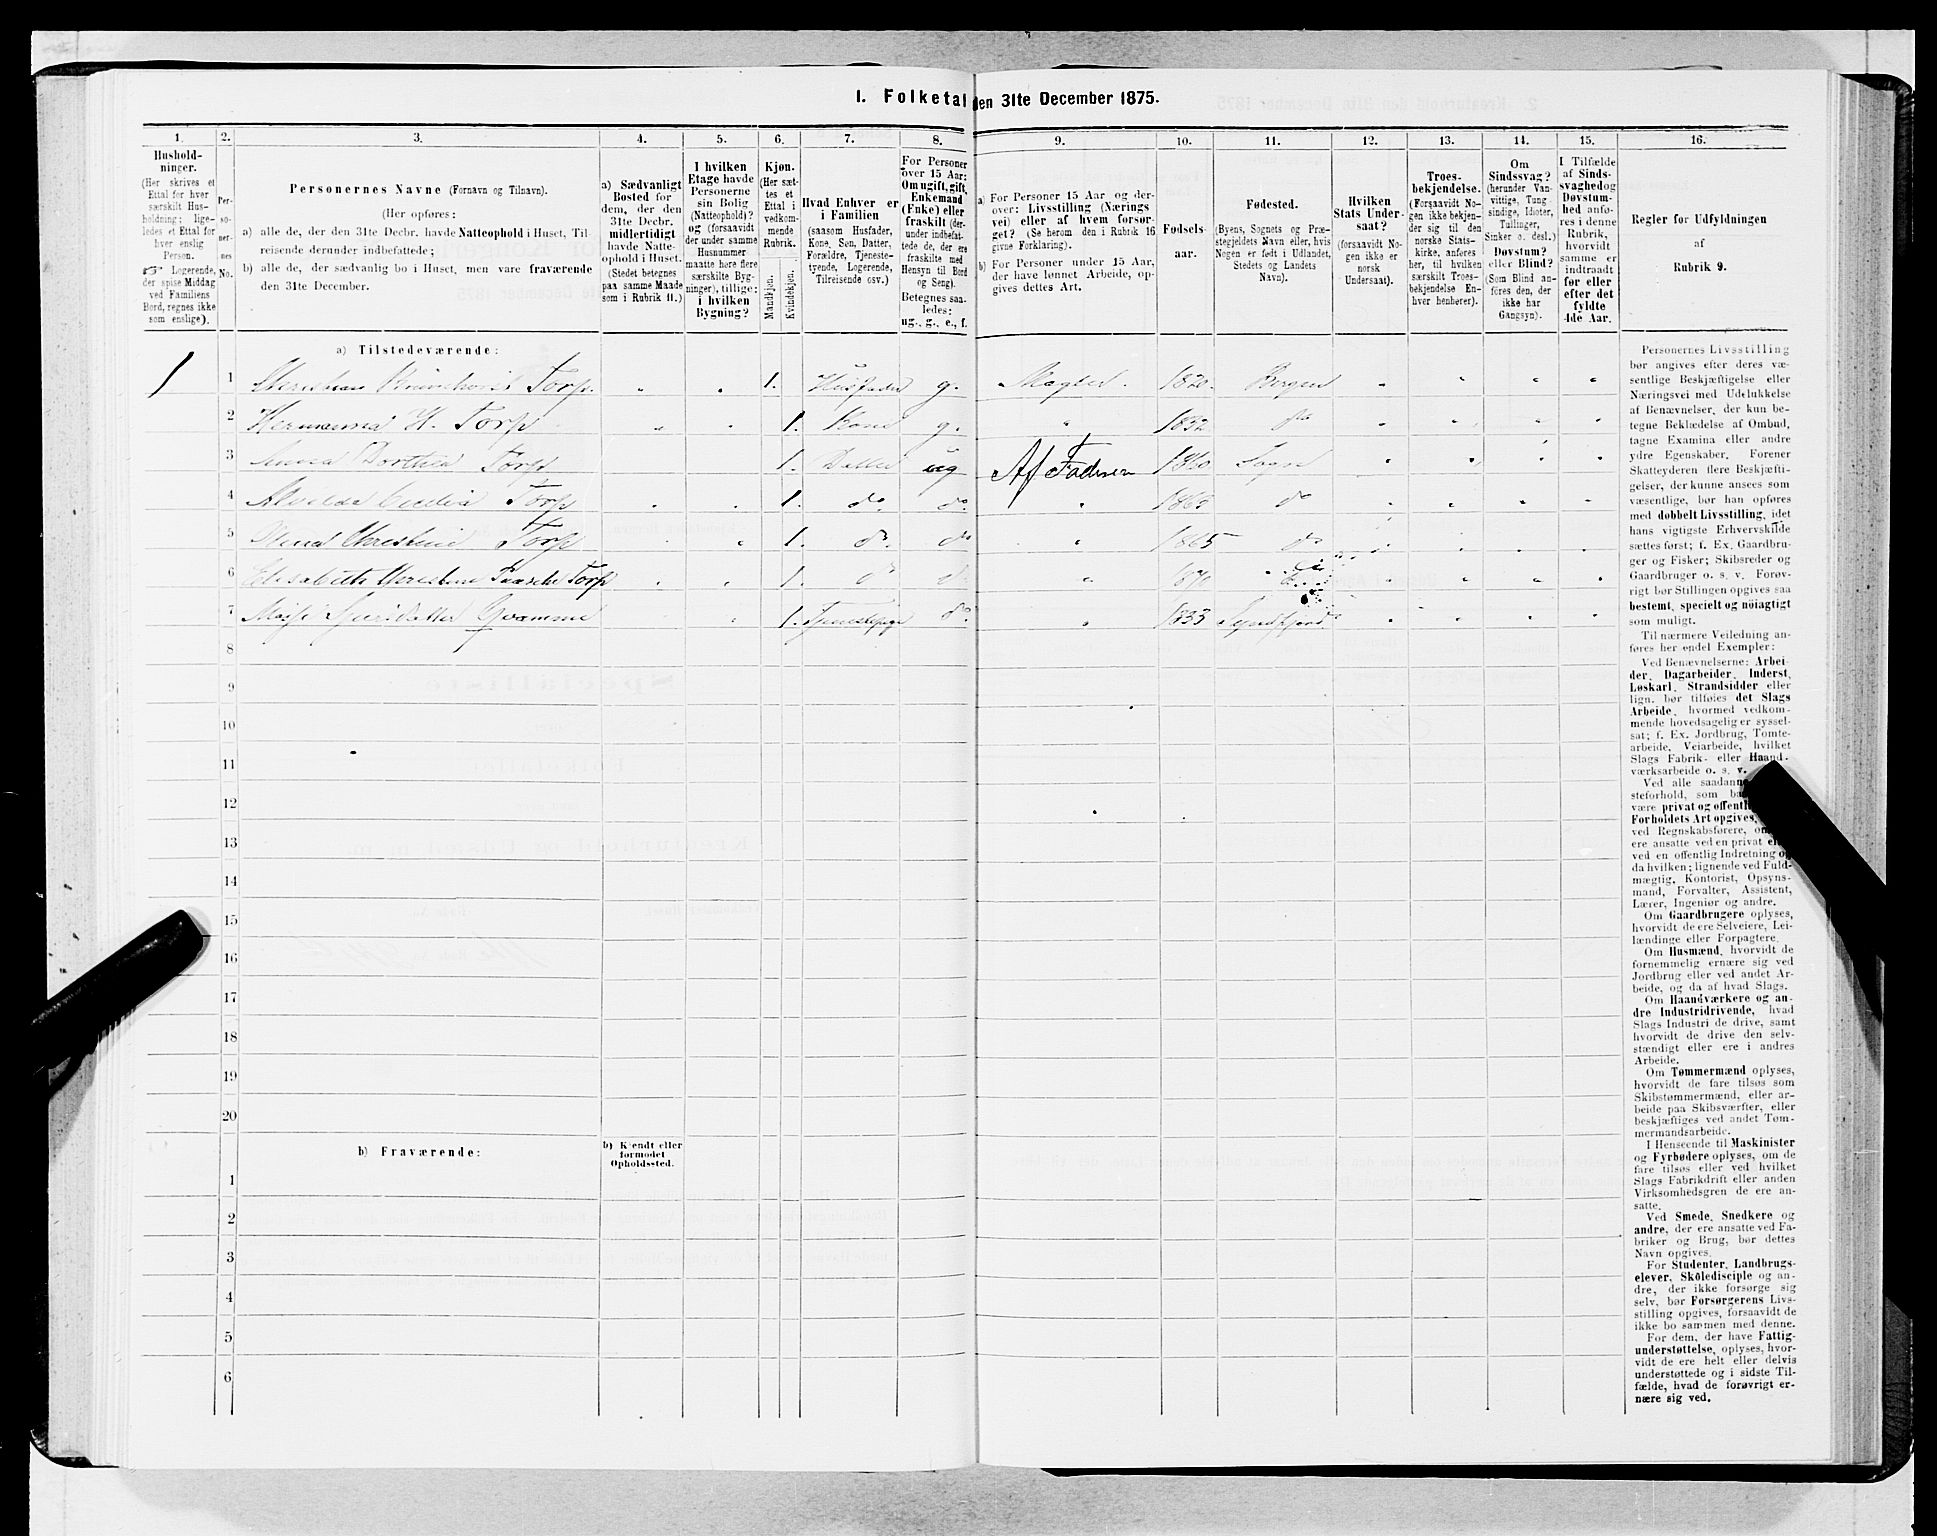 I. Folketal den 31te December 1875.
1. 2. 3. 4. 5. 6. 7. 8. 9. 10. 11. 12. 13. 14. 15. 16.
Hushold-
ninger.
(Her skrives et
Ettal for hver
særskilt Hus-
holdning; lige-
ledes et Ettal for
hver enslig
Person.
☞ Logerende,
der spise Middag
ved Familiens
Bord, regnes ikke
som enslige).
Per-
so-
ner-
nes
No.
Personernes Navne (Fornavn og Tilnavn).
(Her opføres:
a) alle de, der den 31te Decbr. havde Natteophold i Huset, Til-
reisende derunder indbefattede;
b) alle de, der sædvanlig bo i Huset, men vare fraværende
den 31te December.
a) Sædvanligt
Bosted for
dem, der den
31te Decbr.
midlertidigt
havde Natte-
ophold i Huset.
(Stedet betegnes
paa samme Maade
som i Rubrik 11.)
I hvilken
Etage havde
Personerne
sin Bolig
(Natteophold)?
og (forsaavidt
der under samme
Husnummer
maatte høre flere
særskilte Byg-
ninger), tillige:
i hvilken
Bygning?
Kjøn.
(Her sæt-
tes et
Ettal i
vedkom-
mende
Rubrik.
Mandkjøn.
Kvindekjøn.
Hvad Enhver er
i Familien
(saasom Husfader,
Kone, Søn, Datter,
Forældre, Tjeneste-
tyende, Logerende,
Tilreisende osv.)
For Personer
over 15 Aar:
Om ugift, gift,
Enkemand
(Enke) eller
fraskilt (der-
under indbefat-
tede de, der ere
fraskilte med
Hensyn til Bord
og Seng).
Betegnes saa-
ledes:
ug., g., e., f.
a) For Personer 15 Aar og der-
over: Livsstilling (Nærings
vei) eller af hvem forsør-
get? (Se herom den i Rubrik 16
givne Forklaring).
b) For Personer under 15 Aar,
der have lønnet Arbeide, op-
gives dettes Art.
Fødsels-
aar.
Fødested.
(Byens, Sognets og Præ-
stegjeldets Navn eller, hvis
Nogen er født i Udlandet,
Stedets og Landets
Navn).
Hvilken
Stats Under-
saat?
(forsaavidt No-
gen ikke er
norsk
Undersaat).
Troes-
bekjendelse.
(Forsaavidt No-
gen ikke bekjen-
der sig til den
norske Stats-
kirke, anføres
her, til hvilken
særskilt Troes-
bekjendelse En-
hver henhører).
Om
Sindssvag?
(herunder Van-
vittige, Tung
sindige, Idioter,
Tullinger,
Sinker o. desl.)
Døvstum?
eller Blind?
(Som Blind an-
føres den, der
ikke har
Gangsyn).
I Tilfælde
af Sinds-
svaghed og
Døvstum-
hed anfø-
res i denne
Rubrik,
hvorvidt
samme er
indtraadt
før eller
efter det
fyldte
4de Aar.
Regler for Udfyldningen
af
Rubrik 9.
a) Tilstedeværende:
1 1 Torp. 1. Husfader g. Mægler. 1820. Bergen
2 Hermanna H. Torp 1. Kone g. 1832 do
3 Dorthea Torp 1. Datter ug Af Faderen 1860 Sogn
4 Cecilia Torp 1. do. do. 1863 do
5 Christine Torp 1. do. do 1865 do
6 Elisabeth Christine Torp 1. do do 1870
7 1. Tjenestepige do. 1833 Søndfjord
8
9
10
11
12
13
14
15
16
17
18
19
20
b) Fraværende:
b) Kjendt eller
formodet
Opholdssted.
1
2
3
4
5
6
Personernes Livsstilling
bør angives efter deres væ-
sentlige Beskjæftigelse eller
Næringsvei med Udelukkelse
af Benævnelser, der kun be-
tegne Beklædelse af Ombud,
tagne Examina eller andre
ydre Egenskaber. Forener
Skatteyderen flere Beskjæfti-
gelser, der kunne ansees som
væsentlige, bør han opføres
med dobbelt Livsstilling, idet
hans vigtigste Erhvervskilde
sættes først; f. Ex. Gaardbru-
ger og Fisker; Skibsreder og
Gaardbruger o. s. v. Forøv-
rigt bør Stillingen opgives saa
bestemt, specielt og nøiagtigt
som muligt.
Til nærmere Veiledning an-
føres her endel Exempler:
Ved Benævnelserne: Arbei-
der, Dagarbeider, Inderst,
Løskarl, Strandsidder eller
lign. bør tilføies det Slags
Arbeide, hvormed vedkom-
mende hovedsagelig er syssel-
sat; f. Ex. Jordbrug, Tomte-
arbeide, Veiarbeide, hvilket
Slags Fabrik- eller Haand-
værksarbeide o. s. v.
Ved alle saadanne
steforhold, som
være privat og
Forholdets Art opgives,
ved Regnskabsførere,
ere ansatte ved en privat
ved en offentlig Indretning
da hvilken; lignende ved Fuld-
mægtig, Kontorist, Opsyns-
mand, Forvalter, Assistent,
Lærer, Ingeniør og andre.
Om Gaardbrugere oplyses,
hvorvidt de ere Selveiere, Lei-
lændinge eller Forpagtere.
Om Husmænd, hvorvidt de
fornemmelig ernære sig ved
Jordbrug eller ved andet Ar-
beide, og da af hvad Slags.
Om Haandværkere og an-
dre Industridrivende, hvad
Slags Industri de drive, samt
hvorvidt de drive den selv-
stændigt eller ere i andres
Arbeide.
Om Tømmermænd oplyses,
hvorvidt de fare tilsøs som
Skibstømmermænd, eller ar-
beide paa Skibsværfter, eller
beskjæftiges ved andet Tøm-
mermandsarbeide.
I Henseende til Maskinister
og Fyrbødere oplyses, om de
fare tilsøs eller ved hvilket
Slags Fabrikdrift eller anden
Virksomhedsgren de ere an-
satte.
Ved Smede, Snedkere og
andre, der ere ansatte ved Fa-
briker og Brug, bør dettes
Navn opgives.
For Studenter, Landbrugs-
elever, Skoledisciple og an-
dre, der ikke forsørge sig
selv, bør Forsørgerens Livs-
stilling opgives, forsaavidt de
ikke bo sammen med denne.
For dem, der have Fattig-
understøttelse, oplyses, hvor-
vidt de ere helt eller delvis
understøttede og i sidste Til-
fælde, hvad de forøvrigt er-
nære sig ved.